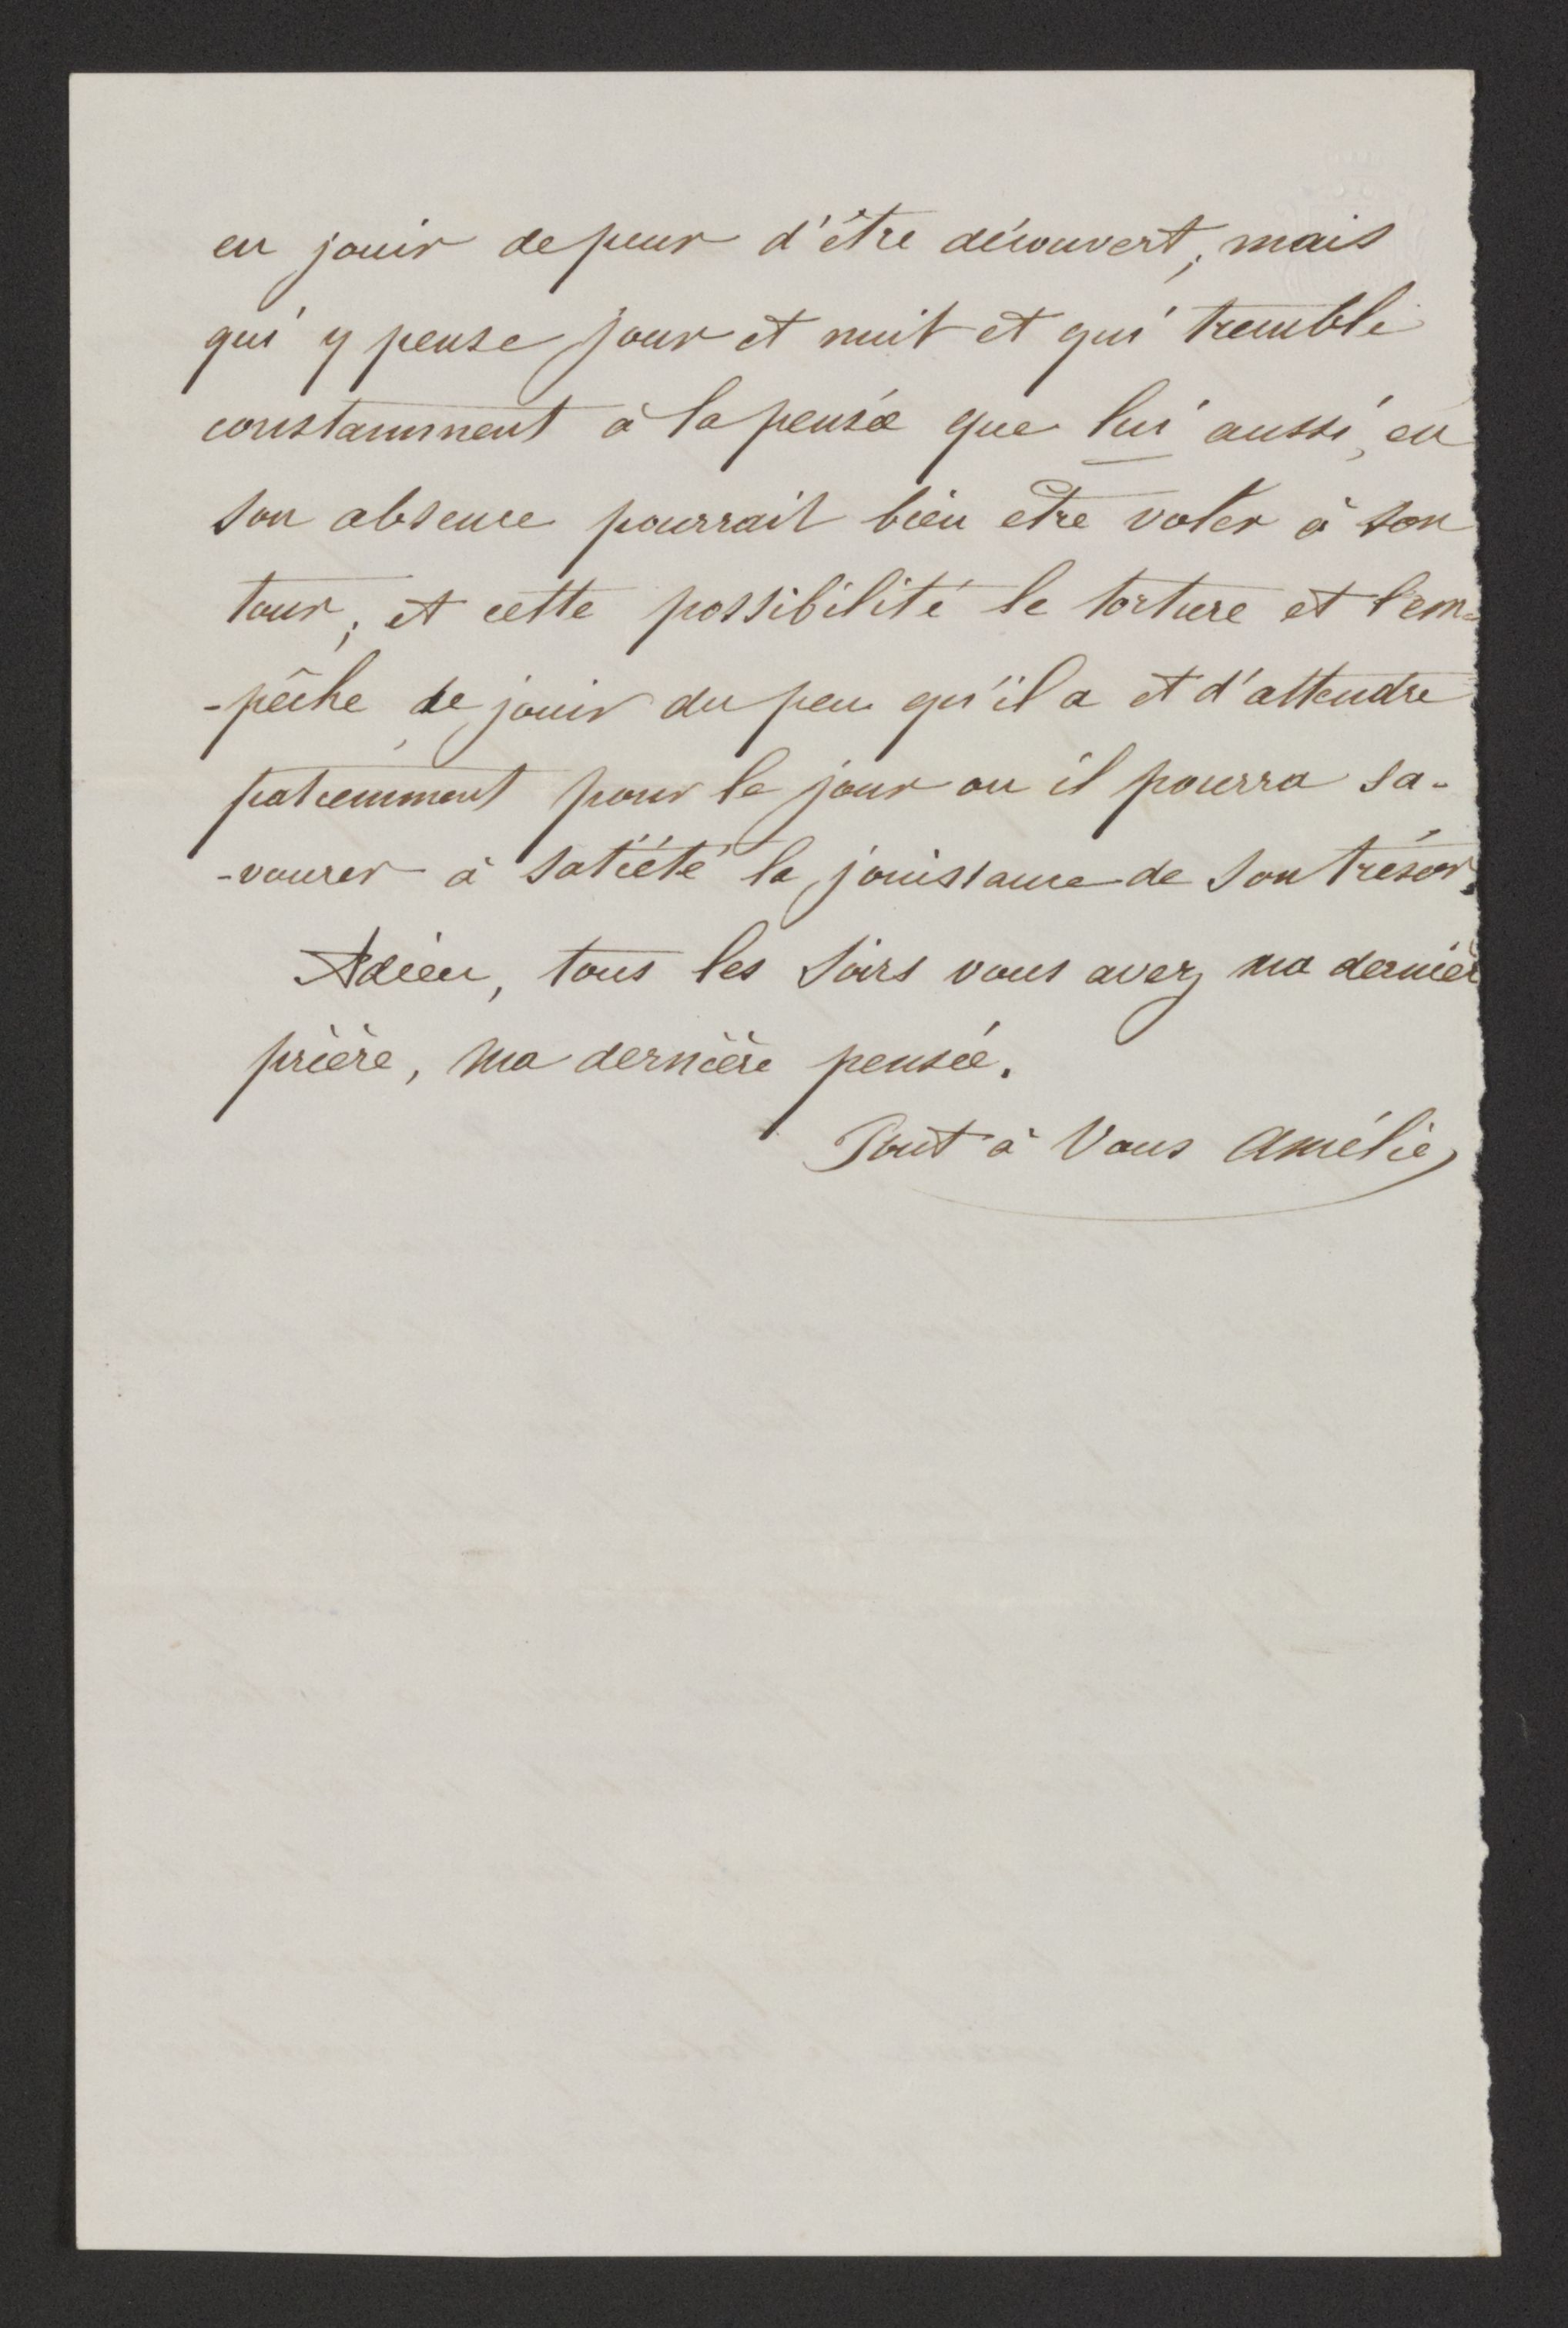 en jouir de peur d'être découvert; mais
qui y pense jour et nuit et qui tremble
constamment à la pensée que lui aussi, en
son absence pourrait bien etre voler à son
tour; et cette possibilité le torture et l'em-
-pêche de jouir du peu qu'il a et d'attendre
patiemment pour le jour ou il pourra sa-
-vourer à satiété la jouissance de son trésor.
Adieu, tous les soirs vous avez ma dernièr
prière, ma dernière pensée.
Tout à Vous Amélie